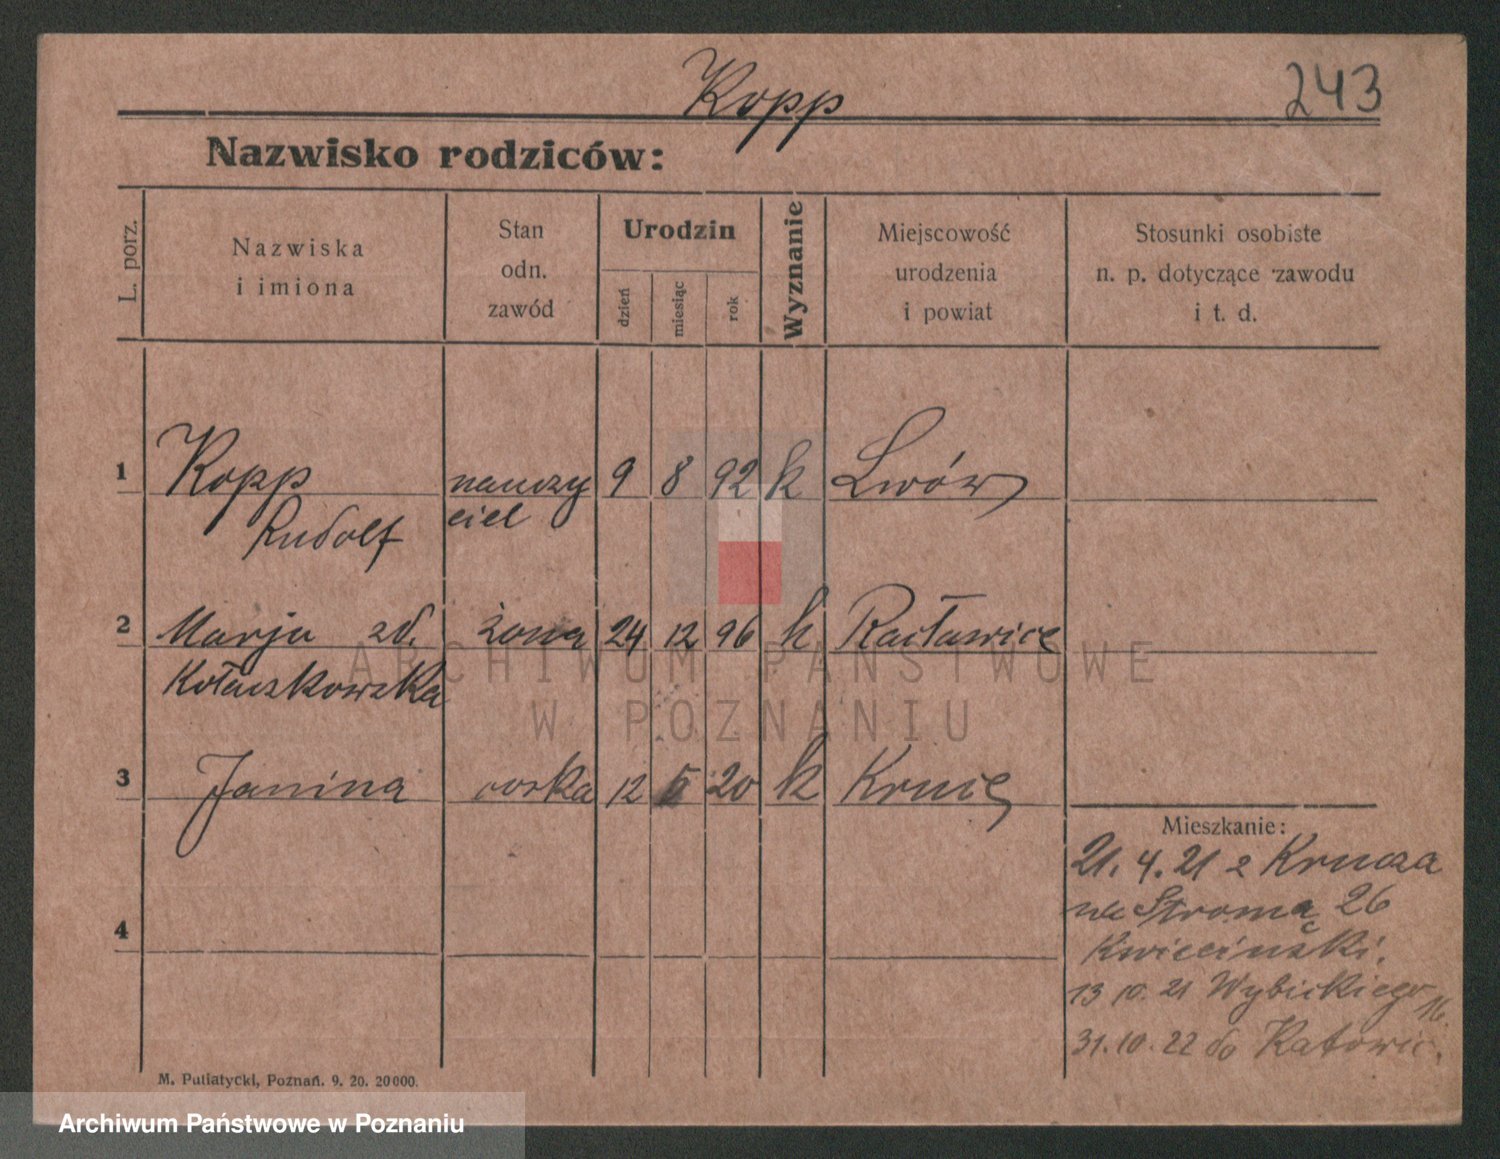 Kopp
243
Nazwisko rodziców:
L. porz.
Nazwiska
i imiona
Stan
odn.
zawód
Urodzin
dzień
miesiąc
rok
Wyznanie
Miejscowość
urodzenia
i powiat
Stosunki osobiste
n. p. dotyczące zawodu
i t. d.
1 Kopp nauczy 9 8 92 k Lwów
Rudolf ciel
2 Marja zd. żona 24 12 96 k Racławice
Kołaczkowska
3 Janina corka 12 5 20 k
4
Mieszkanie:
21. 4. 21 z Krucza
na Stromą 26
Kwieciński.
13 10. 21 Wybickiego 16.
31. 10. 22 do Katowic.
M. Putiatycki, Poznań. 9. 20. 20000.
ARCHIWUM PAŃSTWOWE
W POZNANIU
Archiwum Państwowe w Poznaniu